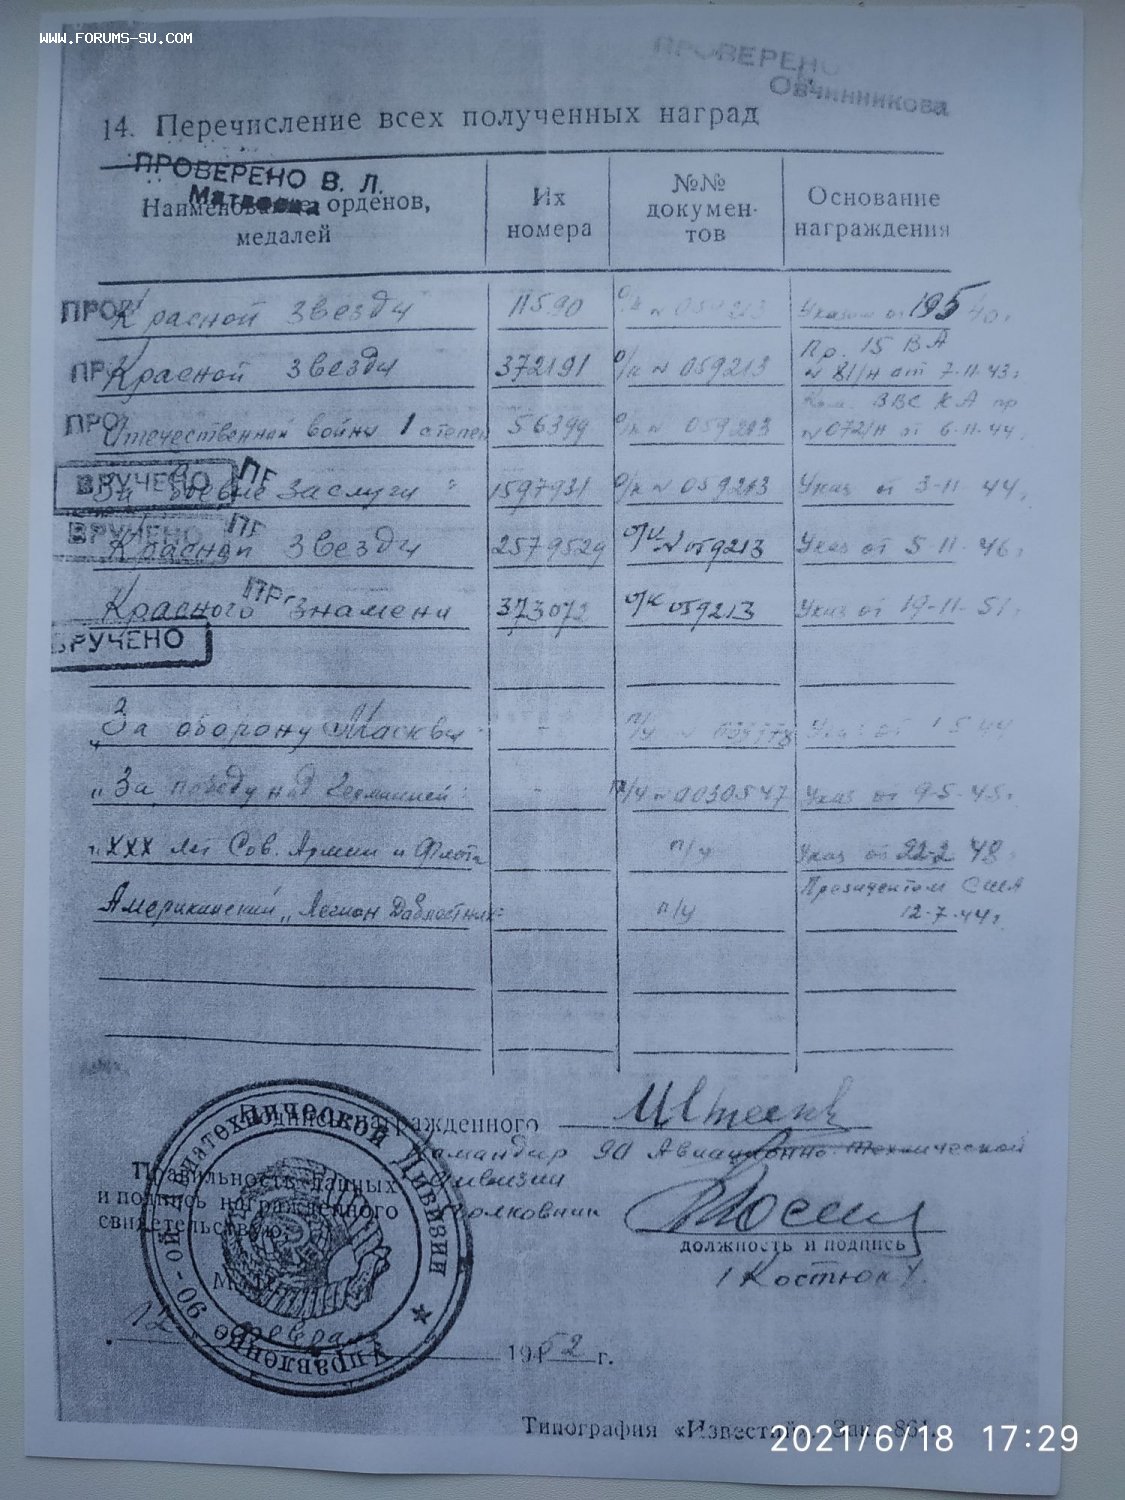 WWW.FORUMS-SU.COM
ПРОВЕРЕНО
Овчинникова
14. Перечисление всех полученных наград
ПРОВЕРЕНО В. Л.
Наименование орденов,
медалей
Их
номера
№№
докумен-
тов
Основание
награждения
ПРОВ Красной Звезды 11590 о/к № 059213 Указ от 195 40г.
ПР Красной Звезды 372191 о/к № 059213 Пр. 15 ВА
№ 81/н от 7-11-43г
ПРО Отечественной войны 1 степен 56399 о/к № 059213 Ком. ВВС КА пр
№072/н от 6-11-44г.
ВРУЧЕНО ПР
"За боевые заслуги" 1597931 о/к № 059213 Указ от 3-11-44г
ВРУЧЕНО ПР
Красной Звезды 2579529 о/к № 059213 Указ от 5-11-46г
Красного ПР. Знамени 373072 о/к 059213 Указ от 19-11-51г
ВРУЧЕНО
"За оборону Москвы" - п/у № Указ от 1-5-44
"За победу над Германией" - п/у № 0030547 Указ от 9-5-45г.
"XXX лет Сов. Армии и Флота п/у Указ от 22-2 48г
Американский "Легион п/у Президентом США
12-7-44г.
Подпись награжденного
Командир 90 Авиационно технической
Правильность данных Дивизии
и подпись награжденного Полковник
свидетельствую:
должность и подпись
/Костюк/.
М. П.
Управление 90-ой Авиатехнической Дивизии
12 февраля 1952 г.
Типография «Известий». Зак. 861.
2021/6/18 17:29